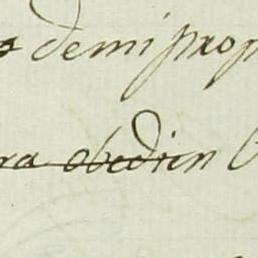 demi prop
ra obedien